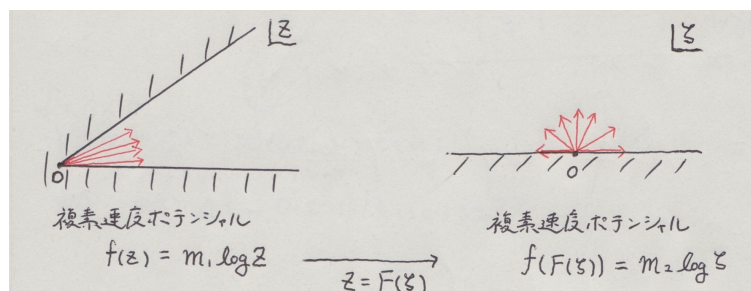 z
ζ
0
0
複素速度ポテンシャル
f(z) = m₁ log z
z = F(ζ)
複素速度ポテンシャル
f(F(ζ)) = m₂ log ζ